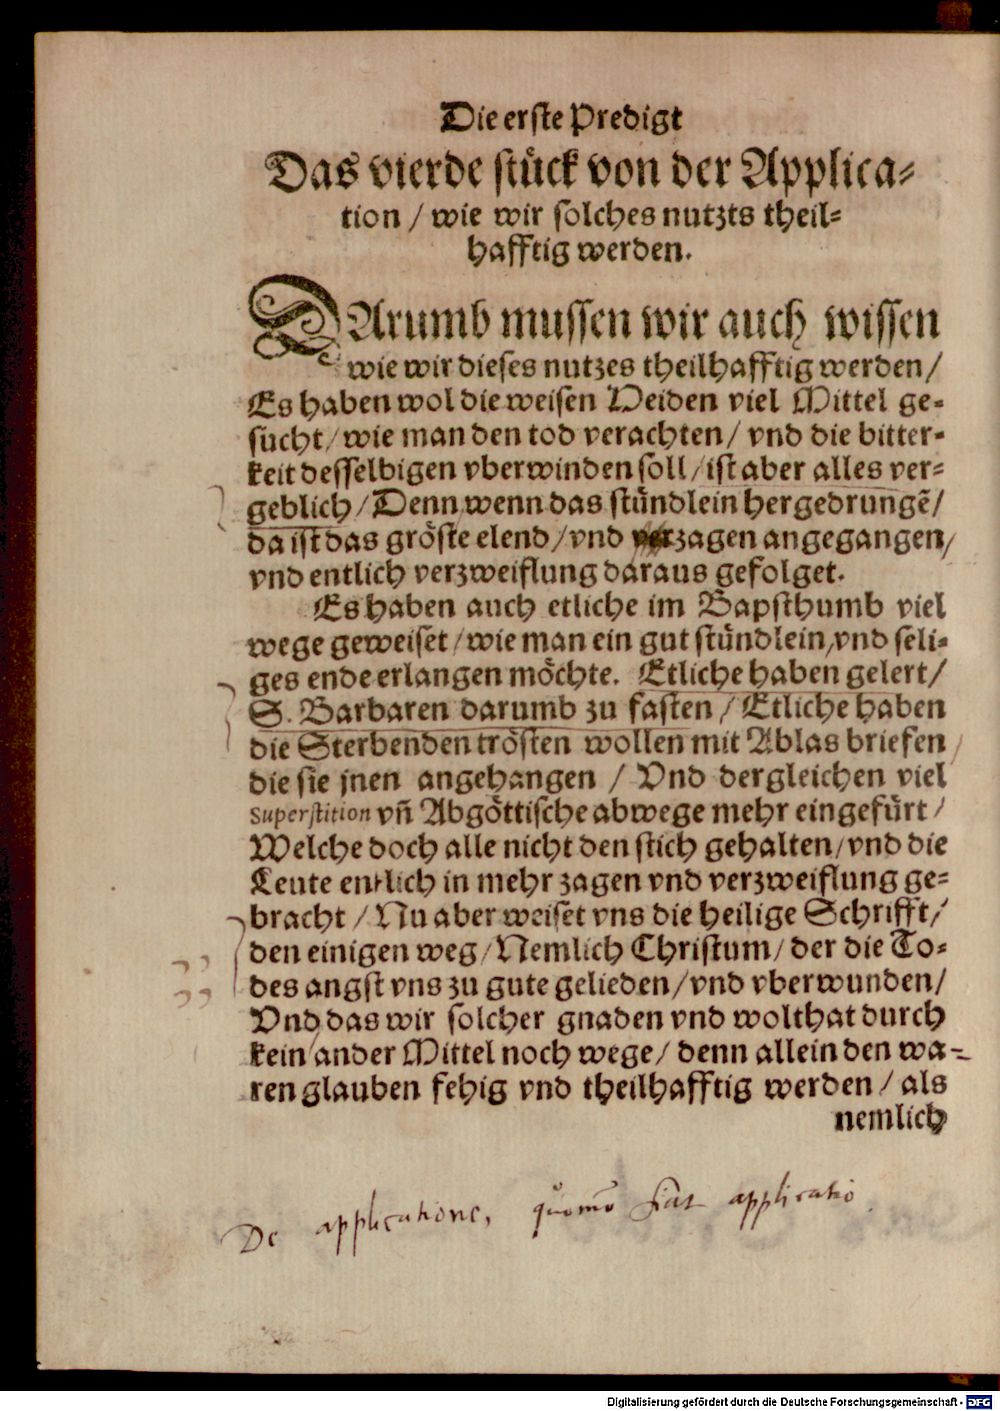 Die erste Predigt
Das vierde stück von der Applica⸗
tion / wie wir solches nutzts theil⸗
hafftig werden.
DArumb mussen wir auch wissen
wie wir dieses nutzes theilhafftig werden /
Es haben wol die weisen Heiden viel Mittel ge⸗
sucht / wie man den tod verachten / vnd die bitter⸗
keit desselbigen vberwinden soll / ist aber alles ver⸗
geblich / Denn wenn das stündlein hergedrungẽ /
da ist das gröste elend / vnd verzagen angegangen /
vnd entlich verzweiflung daraus gefolget.
Es haben auch etliche im Bapsthumb viel
wege geweiset / wie man ein gut stündlein / vnd seli⸗
ges ende erlangen möchte. Etliche haben gelert /
S. Barbaren darumb zu fasten / Etliche haben
die Sterbenden trösten wollen mit Ablas briefen /
die sie jnen angehangen / Vnd dergleichen viel
Superstition vñ Abgöttische abwege mehr eingefürt /
Welche doch alle nicht den stich gehalten / vnd die
Leute entlich in mehr zagen vnd verzweiflung ge⸗
bracht / Nu aber weiset vns die heilige Schrifft /
den einigen weg / Nemlich Christum / der die To⸗
des angst vns zu gute gelieden / vnd vberwunden /
Vnd das wir solcher gnaden vnd wolthat durch
kein ander Mittel noch wege / denn allein den wa⸗
ren glauben fehig vnd theilhafftig werden / als
nemlich
De applicatione, quomo fiat applicatio
Digitalisierung gefördert durch die Deutsche Forschungsgemeinschaft - DFG